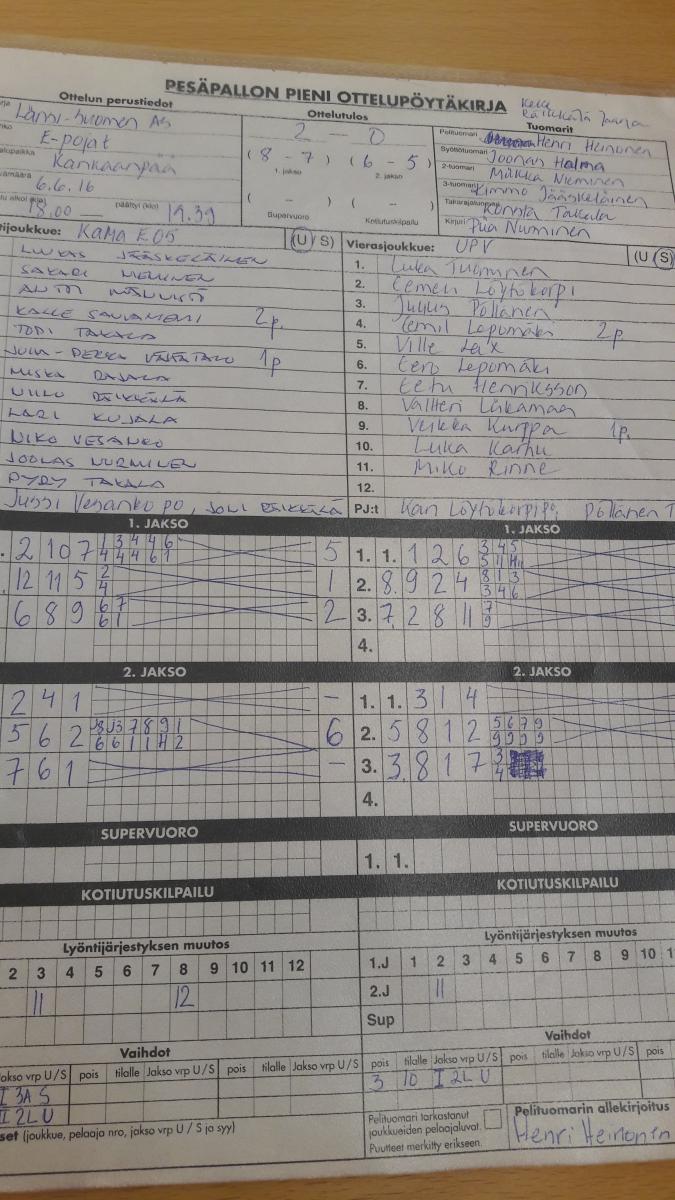 PESÄPALLON PIENI OTTELUPÖYTÄKIRJA
Ottelun perustiedot
Ottelutulos
Tuomarit
Länsi-Suomen
E-pojat
Kankaanpää
6.6.16
18.00 päättyi (klo) 19.39
2 - 0
(8 - 7) (6 - 5)
1. jakso 2. jakso
( - ) ( - )
Supervuoro Kotiutuskilpailu
Pelituomari Henri Heinonen
Syöttötuomari Joonan Halma
2-tuomari Miikka Nieminen
3-tuomari Kimmo Jääskeläinen
Takarajatuomari Konsta Takala
Kirjuri Piia Nurminen
tijoukkue: KaMa E05 (U/S)
LUKAS JÄÄSKELÄINEN
SAKARI NIEMINEN
KALLE 2p.
TOPI TAKALA
1p
MISKA RAJALA
LARI KUJALA
NIKO VESANKO
JOONAS NURMINEN
PYRY TAKALA
Jussi Vesanko po, JONI
Vierasjoukkue: UPV (U/S)
1. Luka Tuominen
2. Eemeli Löytökorpi
3. Julius Pöllänen
4. Eemil Lepomäki 2p
5. Ville
6. Eero Lepomäki
7. Eetu Henriksson
8. Valtteri Liikamaa
9. Veikka Kurppa 1p.
10. Luka Karhu
11. Miko Rinne
12.
PJ:t Kari Löytökorpi Pöllänen T
1. JAKSO
2 10 7 1 3 4 4 6 5
4 4 4 6 1
12 11 5 2 1
4
6 8 9 6 7 2
6 1
1. JAKSO
1. 1. 1 2 6 3 4 5
5 11 11
2. 8. 9 2 4 8 1 3
3 4 6
3. 7. 2 8 11 7
9
4.
2. JAKSO
2 4 1 -
5 6 2 7 8 9 1 6
6 6 1 1 2
7 6 1 -
2. JAKSO
1. 1. 3 1 4
2. 5 8 1 2 5 6 7 9
9 9 9 9
3. 3. 8 1 7 3
4
4.
SUPERVUORO
SUPERVUORO
1. 1.
KOTIUTUSKILPAILU
KOTIUTUSKILPAILU
Lyöntijärjestyksen muutos
2 3 4 5 6 7 8 9 10 11 12
11 12
Lyöntijärjestyksen muutos
1.J 1 2 3 4 5 6 7 8 9 10 1
2.J 11
Sup
Vaihdot
Jakso vrp U/S pois tilalle Jakso vrp U/S pois tilalle Jakso vrp U/S
I 3A S
II 2L U
Vaihdot
pois tilalle Jakso vrp U/S pois tilalle Jakso vrp U/S pois
3 10 I 2L U
set (joukkue, pelaaja nro, jakso vrp U / S ja syy)
Pelituomari tarkastanut
joukkueiden pelaajaluvat.
Puutteet merkitty erikseen.
Pelituomarin allekirjoitus
Henri Heinonen